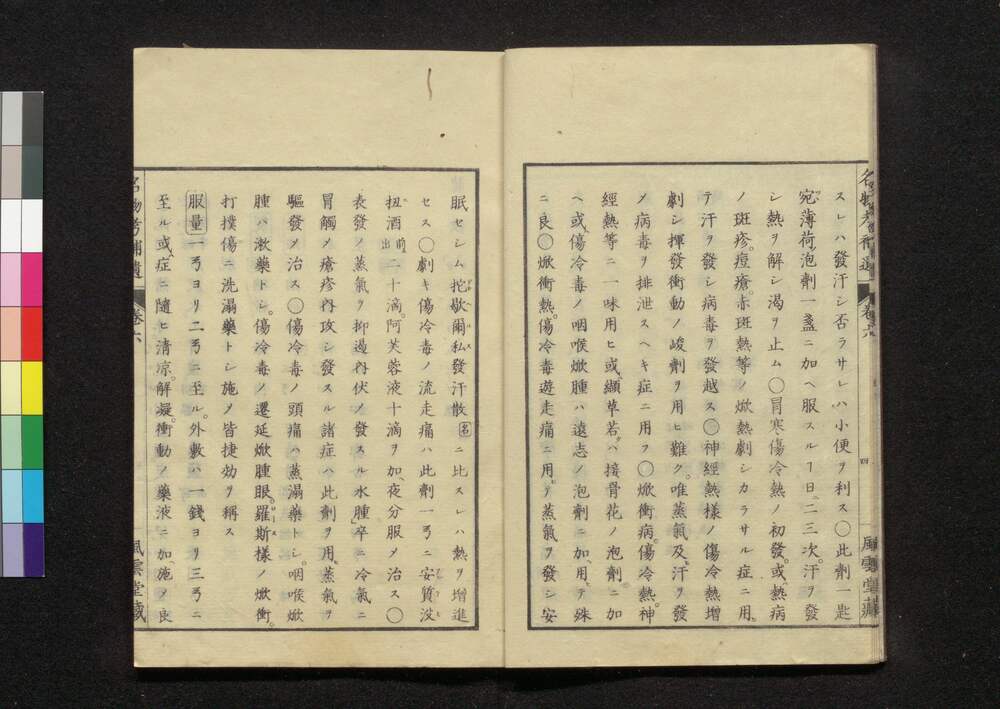 名物考補遺 卷六 四 風雲堂藏
スレハ發汗シ否ラサレハ小便ヲ利ス〇此劑一匙
宛薄荷泡劑一盞ニ加ヘ服スルヿ日ニ二三次汗ヲ發
シ熱ヲ解シ渴ヲ止ム〇冒寒傷冷熱ノ初發或熱病
ノ斑疹痘瘡赤斑熱等ノ焮熱劇シカラサル症ニ用
テ汗ヲ發シ病毒ヲ發越ス〇神經熱樣ノ傷冷熱增
劇シ揮發衝動ノ峻劑ヲ用ヒ難ク唯蒸氣及汗ヲ發
メ病毒ヲ排泄スヘキ症ニ用フ〇焮衝病傷冷熱神
經熱等ニ一味用ヒ或纈草若ハ接骨花ノ泡劑ニ加
ヘ或傷冷毒ノ咽喉焮腫ハ遠志ノ泡劑ニ加用テ殊
ニ良〇焮衝熱傷冷毒遊走痛ニ用ヲ蒸氣ヲ發シ安
眠セシム抡歇爾私發汗散名ニ比スレハ熱ヲ增進
セス〇劇キ傷冷毒ノ流走痛ハ此劑一丐ニ安質沒
扭酒前出二十滴阿芙蓉液十滴ヲ加夜分服メ治ス〇
表發ノ蒸氣ヲ抑遏內伏ノ發スル水腫卒ニ冷氣ニ
冒觸メ瘡疹內攻シ發スル諸症ハ此劑ヲ用蒸氣ヲ
驅發メ治ス〇傷冷毒ノ頭痛ハ蒸溻藥トシ咽喉焮
腫ハ漱藥トシ傷冷毒ノ遷延焮腫眼羅斯樣ノ焮衝
打撲傷ニ洗溻藥トシ施メ皆捷効ヲ稱ス
服量一丐ヨリ二丐ニ至ル外敷ハ一錢ヨリ三丐ニ
至ル或症ニ隨ヒ淸涼解凝衝動ノ藥液ニ加施メ良
名物考補遺 卷六 風雲堂藏